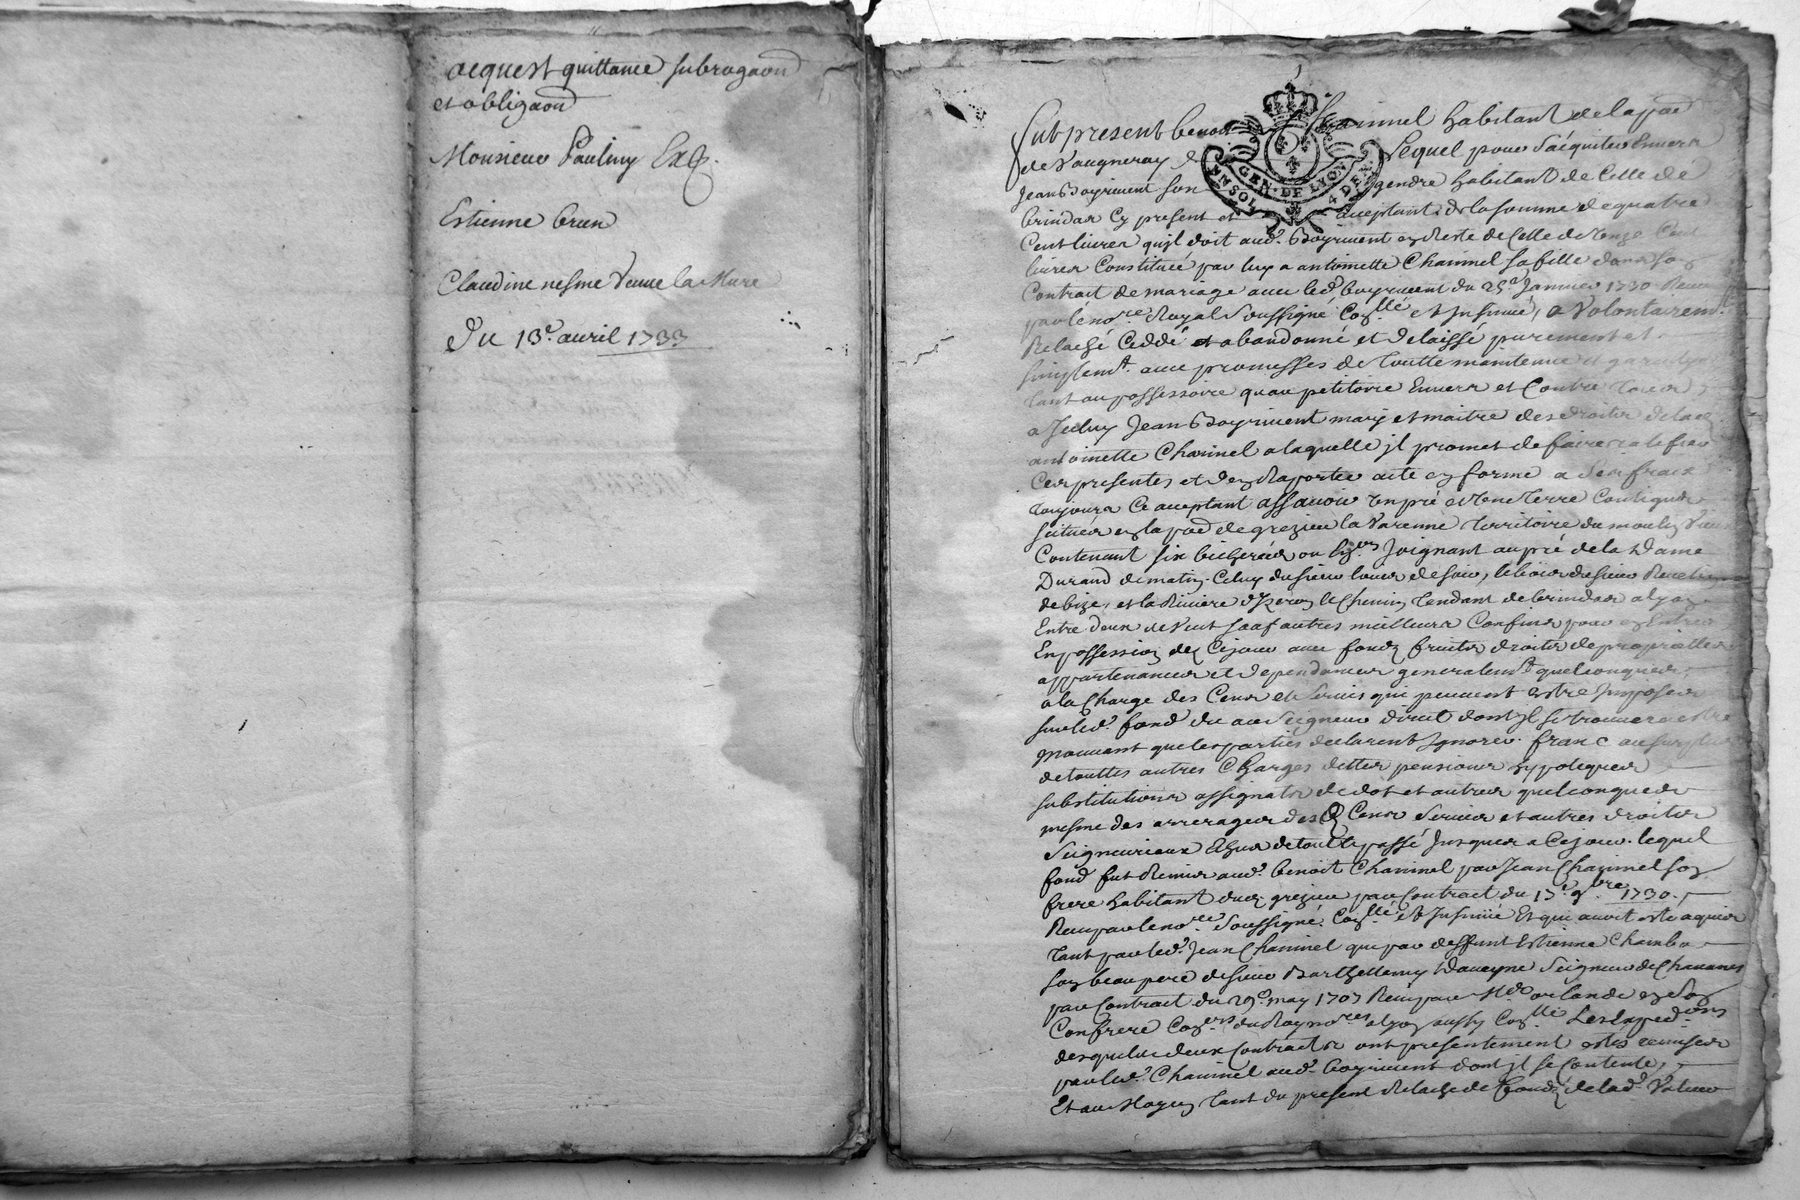 acquest quittance subrogaon
et obligaon
Monsieur Paulmy Exp.
Estienne brun
Claudine nesme Veuve la Mure
Du 13e. avril 1733
fut present benoit Charmel habitant de la par
de Vaugneray Lequel pour s'aquiter Envers
Jean Boyriuent son gendre habitant de Celle de
brindas Cy present et acceptant de la somme de quatre
Cent livres qu'il doit aud. Boyriuent en Reste de Celle de
livres Constituée par luy a antoinette Charmel sa fille dans son
Contrait de mariage avec led. boyriuent du 25e Janvier 1730 Receu
par le nore Royal soussigné Collé et Insinué, a Volontairemt
Relasché Ceddé et abandonné et delaissé purement et
simplemt. avec promesses de toutte maintenue et garentye
tant au possessoire qu'au petitoire Envers et Contre tous
a Icelluy Jean Boyriuent mary et maitre des droits de lad
antoinette Charmel a laquelle jl promet de faire ratifier
Ces presentes et d'en Raporter acte en forme a ses fraix
toujours Ce acceptant assavoir Un pré et Une terre Contigus
situés en la par de grezieu la Varenne territoire du moulin Vieux
Contenant six bicherées ou Environ Joignant au pré de la Dame
Durand de matin, Celuy du sieur de soir,
de bize, et la Riviere d'yzeron le Chemin tendant de brindas a lyon
Entre deux de Vent sauf autres meilleurs Confins pour en Entrer
En possession dez Cejour avec fondz fruits droits de proprietés
appartenances et dependances generalemt. quelconques
a la Charge des Cens et servis qui peuvent estre Imposés
sur led. fond du au Seigneur direct dont jl se trouvera estre
mouvant que les parties declarent Ignorer. franc au surplus
de touttes autres Charges dettes pensions hypoteques
substitutions assignats de dot et autres quelconques
mesme des arrerages des Cens Servis et autres droits
Seigneuriaux Echus de tout le passé Jusques a Cejour. lequel
fond fut Remis aud. benoit Charmel par Jean Charmel son
frere habitant dud. grezieu par Contract du 13e 9bre 1730.
Receu par le nore. soussigné. Collé et Insinué Et qui avoit esté aquis
tant par led. Jean Charmel que par deffunt Estienne Chamba
son beau pere de sieur Barthellemy Daveyne Seigneur de Chavanes
par Contrait du 29e. may 1707 Receu par Me orlande et son
Confrere Coners du Roy nores a lyon aussy Collé Les Expedons
desquels deux Contracts ont presentement estés remises
par led. Charmel aud. boyriuent dont jl se Contente,
Et au Moyen tant du present Relasche de fondz de lad. Valleur